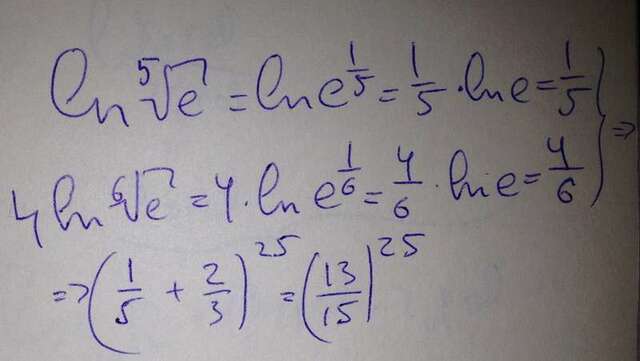 ln ⁵√e = ln e^(1/5) = 1/5 · ln e = 1/5 }
4 ln ⁶√e = 4 · ln e^(1/6) = 4/6 · ln e = 4/6 } =>
=> (1/5 + 2/3)^25 = (13/15)^25